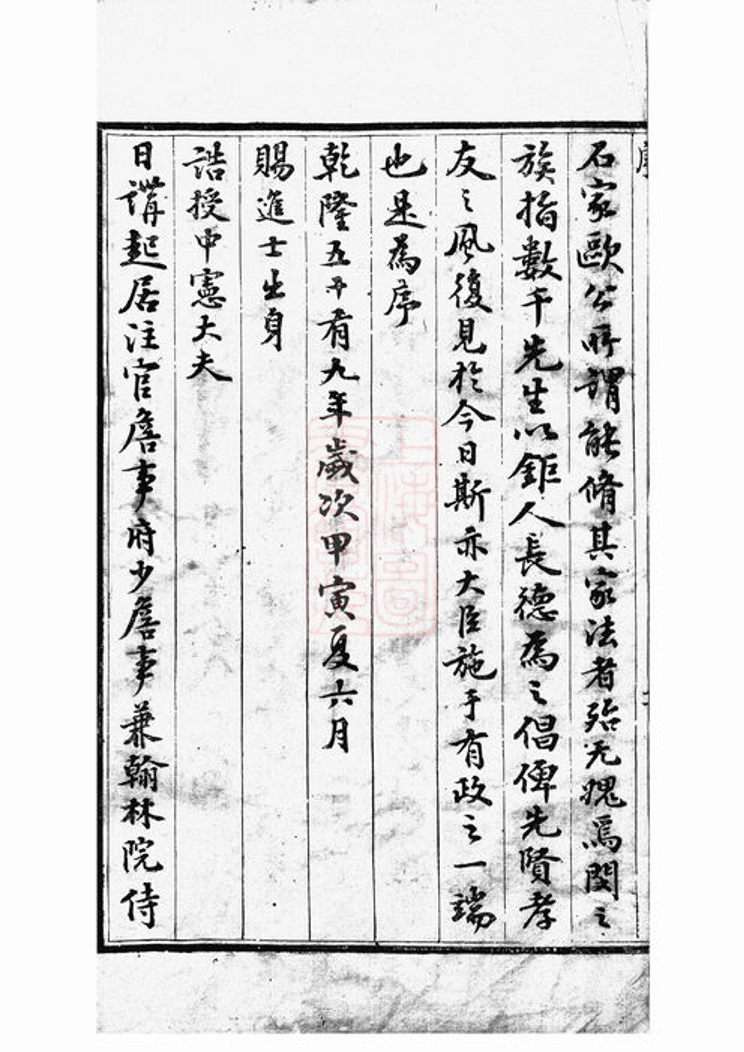 石家歐公所謂能脩其家法者殆无愧焉閔之
族指數千先生以鉅人長德為之倡俾先賢孝
友之風復見於今日斯亦大臣施于有政之一端
也是為序
乾隆五十有九年歲次甲寅夏六月
賜進士出身
誥授中憲大夫
日講起居注官詹事府少詹事兼翰林院侍